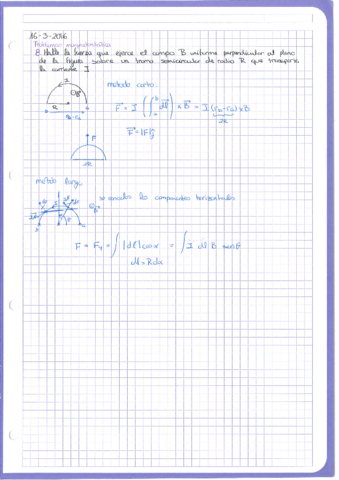 16-3-2016
Problemas magnetostática
8. Halla la fuerza que ejerce el campo B uniforme perpendicular al plano
de la figura sobre un tramo semicircular de radio R que transporta
la corriente I
método corto:
F = I (∫ dl) × B = I (rb-ra) × B
2R
R
F = |F| j
F
2R
método largo
se anulan las componentes horizontales
F = Fy = ∫ |dF| cos α = ∫ I dl B senθ
dl = R dα